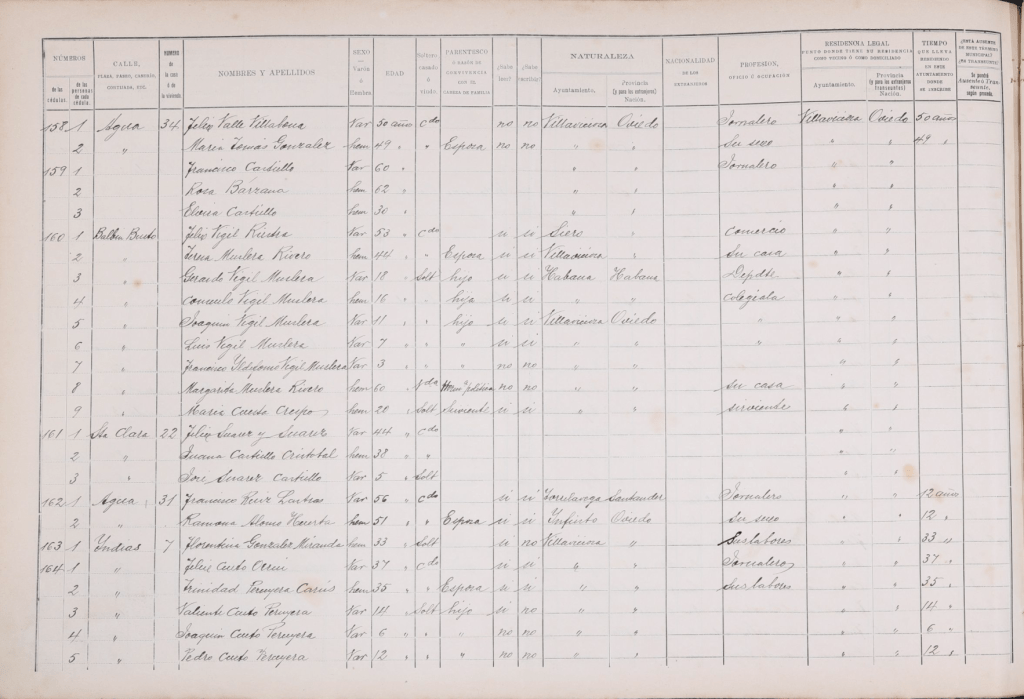 NÚMEROS CALLE, PLAZA, PASEO, CAMINO, COSTANILLA, ETC. NÚMERO de la casa ó de la vivienda. NOMBRES Y APELLIDOS SEXO Varón ó Hembra EDAD Soltero, casado ó viudo. PARENTESCO Ó RAZÓN DE CONVIVENCIA CON EL CABEZA DE FAMILIA ¿Sabe leer? ¿Sabe escribir? NATURALEZA NACIONALIDAD DE LOS EXTRANJEROS PROFESIÓN, OFICIO Ó OCUPACIÓN RESIDENCIA LEGAL PUNTO DONDE TIENE SU RESIDENCIA COMO VECINO Ó COMO DOMICILIADO TIEMPO QUE LLEVA RESIDIENDO EN ESTE AYUNTAMIENTO
de las cédulas. de las personas de cada cédula. Ayuntamiento, Provincia (y para los extranjeros) Nación. Ayuntamiento. Provincia (y para los extranjeros transeuntes) Nación.
158 1 Agua 34 Felix Valle Villabona Var 50 años Cdo no no Villaviciosa Oviedo Jornalero Villaviciosa Oviedo 50 años
2 " Maria Tomas Gonzalez hem 49 " " Esposa no no " " Su sexo " " 49 "
159 1 Francisco Castiello Var 60 " " " Jornalero " "
2 Rosa Barzana hem 62 " " " " "
3 Elvira Castiello hem 30 " " " " "
160 1 Balbin Busto Felix Vigil Riestra Var 53 " Cdo si si Siero " Comercio " "
2 " Teresa Muslera Rivero hem 44 " " Esposa si si Villaviciosa " Su casa " "
3 " Gerardo Vigil Muslera Var 18 " Solt hijo si si Habana Habana Depdte " "
4 " Consuelo Vigil Muslera hem 16 " " hija si si " " Colegiala " "
5 " Joaquin Vigil Muslera Var 11 " " hijo si si Villaviciosa Oviedo " " "
6 " Luis Vigil Muslera Var 7 " " " si si " " " " "
7 " Francisco Yldefonso Vigil Muslera Var 3 " " " no no " " " "
8 " Margarita Muslera Rivero hem 60 " Vda Herma politica no no " " Su casa " "
9 " Maria Cueto Crespo hem 20 " Solt Sirviente si si " " sirviente " "
161 1 Sta Clara 22 Felix Suarez y Suarez Var 44 " Cdo " "
2 " Juana Castiello Cristobal hem 38 " " " "
3 " Jose Suarez Castiello Var 5 " Solt " "
162 1 Agua 31 Francisco Ruiz Var 56 " Cdo si si Torrelavega Santander Jornalero " " 12 años
2 " Ramona Alonso Huerta hem 51 " " Esposa si si Infiesto Oviedo Su sexo " " 12 "
163 1 Yndias 7 Florentina Gonzalez Miranda hem 33 " Solt si no Villaviciosa " Sus labores " " 33 "
164 1 " Felix Cueto Var 37 " Cdo " " Jornalero " " 37 "
2 " Trinidad Peruyera hem 35 " " Esposa si si " " Sus labores " " 35 "
3 " Valiente Cueto Peruyera Var 14 " Solt hijo si no " " " " 14 "
4 " Joaquin Cueto Peruyera Var 6 " " " no no " " " " 6 "
5 " Pedro Cueto Peruyera Var 12 " " " no no " " " " 12 "